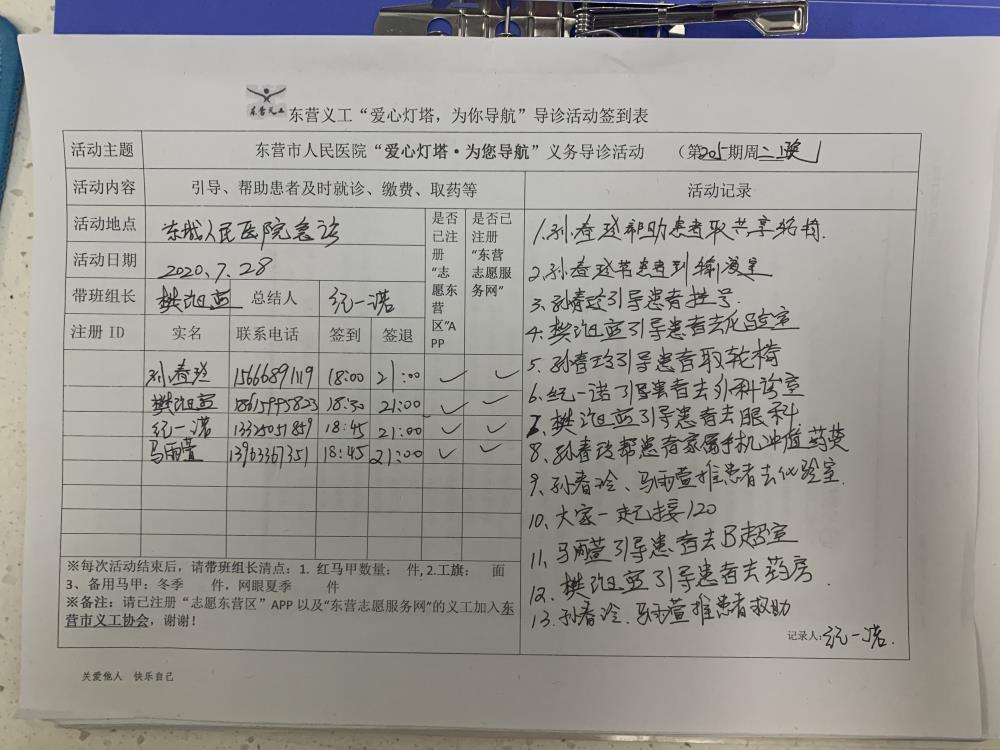 东营义工
东营义工“爱心灯塔，为你导航”导诊活动签到表
活动主题 东营市人民医院“爱心灯塔·为您导航”义务导诊活动 （第205期周二晚）
活动内容 引导、帮助患者及时就诊、缴费、取药等 活动记录
活动地点 东城人民医院急诊
活动日期 2020.7.28
带班组长 樊旭蓝 总结人 纪一诺
是否已注册“志愿东营区”APP
是否已注册“东营志愿服务网”
注册 ID 实名 联系电话 签到 签退
孙春玲 15666891119 18:00 21:00 ✓ ✓
樊旭蓝 18615995823 18:30 21:00 ✓ ✓
纪一诺 13325051859 18:45 21:00 ✓ ✓
马雨萱 13963367351 18:45 21:00 ✓ ✓
※每次活动结束后，请带班组长清点：1. 红马甲数量： 件, 2.工旗： 面
3、备用马甲：冬季 件，网眼夏季 件
※备注：请已注册“志愿东营区”APP 以及“东营志愿服务网”的义工加入东
营市义工协会，谢谢！
1.孙春玲帮助患者取共享轮椅.
2.孙春玲带患者到输液室
3.孙春玲引导患者挂号
4.樊旭蓝引导患者去化验室
5.孙春玲引导患者取轮椅
6.纪一诺引导患者去外科诊室
7.樊旭蓝引导患者去眼科
8.孙春玲帮患者家属手机冲值药费
9、孙春玲、马雨萱推患者去化验室.
10、大家一起接120
11、马雨萱引导患者去B超室
12、樊旭蓝引导患者去药房
13、孙春玲.马雨萱推患者救助
记录人:纪一诺.
关爱他人 快乐自己